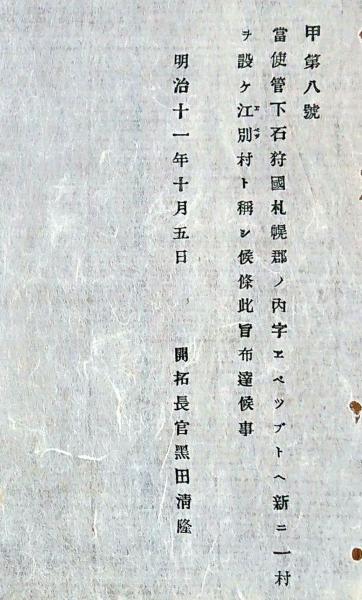 甲第八號
當使管下石狩國札幌郡ノ内字ヱベツブトヘ新ニ一村
ヲ設ケ江別村ト稱シ候條此旨布達候事
明治十一年十月五日 開拓長官黑田清隆